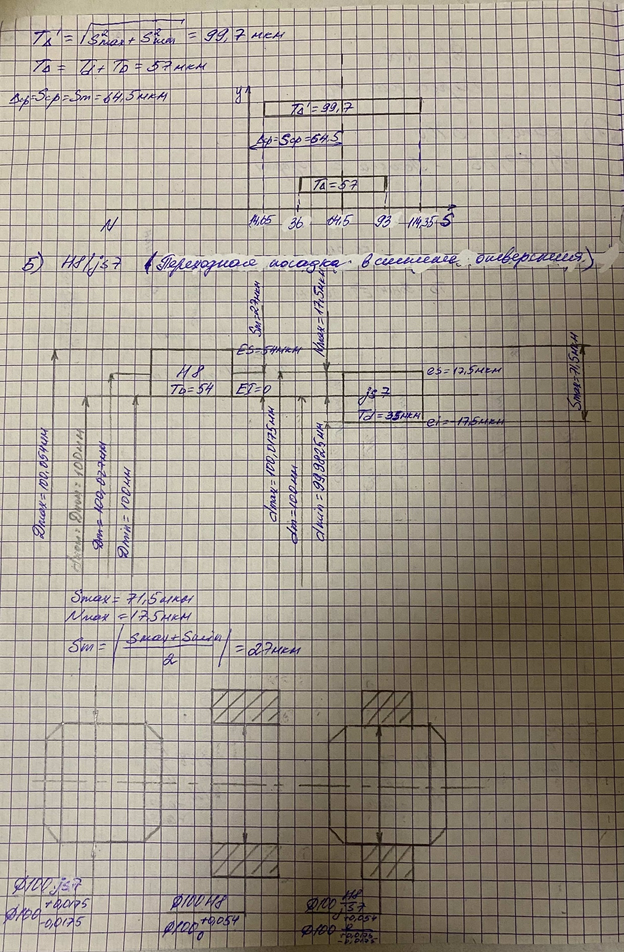 T∆' = √S²max + S²min = 99,7 мкм
T∆ = Td + TD = 57 мкм
∆ср=Sср=Sm=64,5мкм
y
T∆'=99,7
∆ср=Sср=64.5
T∆=57
14,65 36 64,5 93 114,35 S
N
Б) H8/js7 (Переходная посадка в системе отверстия)
Sm=27мкм
Nmax=17,5мкм
ES=54мкм
H8
TD=54
EI=0
es=17,5мкм
js7
Td=35мкм
ei=-17,5мкм
Smax=71,5мкм
Dmax=100,054мм
Dmax=100мм
Dm=100,027мм
Dmin=100мм
dmax=100,0175мм
dm=100мм
dmin=99,9825мм
Smax = 71,5мкм
Nmax=17,5мкм
Sm = |Smax+Smin/2| = 27мкм
Ф100js7
Ф100 +0,0175 -0,0175
Ф100H8
Ф100 +0,054 0
Ф100 H8/js7
Ф100 +0,054 0 / +0,0175 -0,0175